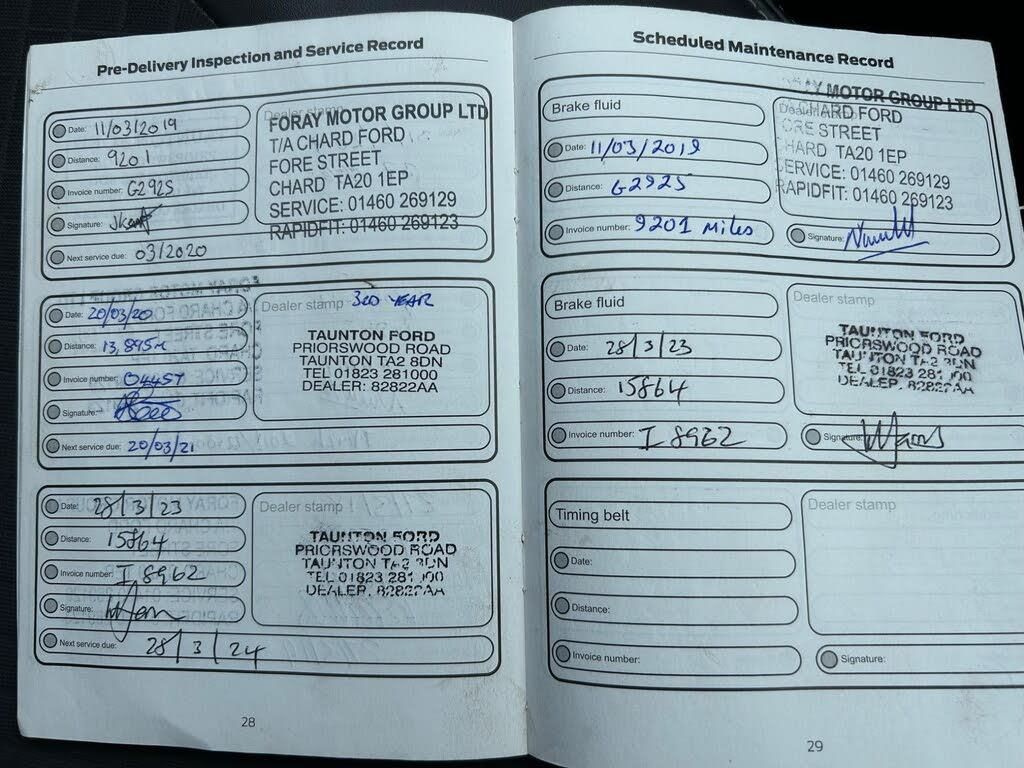 Pre-Delivery Inspection and Service Record
Date: 11/03/2019
Distance: 9201
Invoice number: G2925
Signature:
Next service due: 03/2020
Dealer stamp
FORAY MOTOR GROUP LTD
T/A CHARD FORD
FORE STREET
CHARD TA20 1EP
SERVICE: 01460 269129
RAPIDFIT: 01460 269123
Date: 20/03/20
Distance: 13,895m
Invoice number: 04457
Signature:
Next service due: 20/03/21
Dealer stamp 3RD YEAR
TAUNTON FORD
PRIORSWOOD ROAD
TAUNTON TA2 8DN
TEL 01823 281000
DEALER: 82822AA
Date: 28/3/23
Distance: 15864
Invoice number: I8962
Signature:
Next service due: 28/3/24
Dealer stamp
TAUNTON FORD
PRIORSWOOD ROAD
TAUNTON TA2 8DN
TEL 01823 281 000
DEALER. 82822AA
28
Scheduled Maintenance Record
Brake fluid
Date: 11/03/2019
Distance: G2925
Invoice number: 9201 Miles
Dealer
FORAY MOTOR GROUP LTD
T/A CHARD FORD
FORE STREET
CHARD TA20 1EP
SERVICE: 01460 269129
RAPIDFIT: 01460 269123
Signature:
Brake fluid
Date: 28/3/23
Distance: 15864
Invoice number: I8962
Dealer stamp
TAUNTON FORD
PRIORSWOOD ROAD
TAUNTON TA2 8DN
TEL 01823 281 000
DEALER. 82822AA
Signature:
Timing belt
Date:
Distance:
Invoice number:
Dealer stamp
Signature:
29